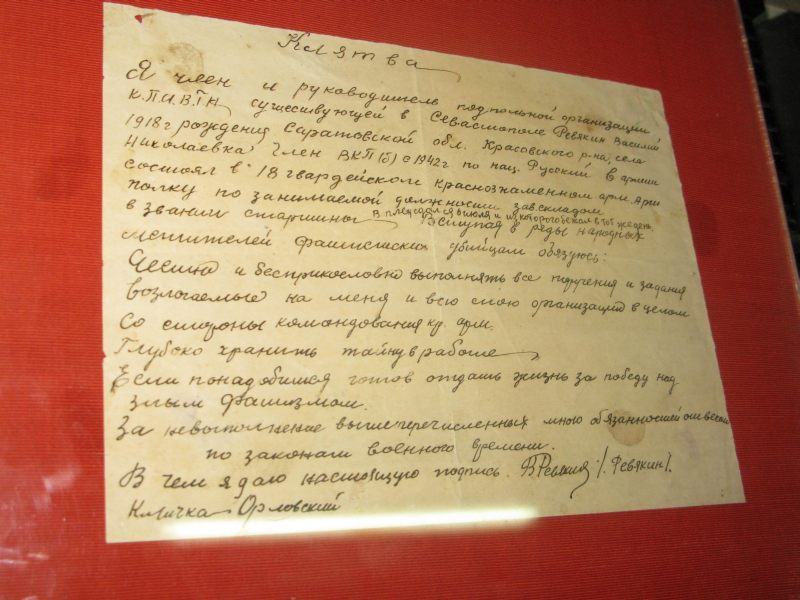 Клятва
Я член и руководитель подпольной организации
К.П.И.В.Т.Н. существующей в Севастополе Ревякин Василий
1918 г рождения Саратовской обл. Красовского р-на, село
Николаевка член ВКП(б) с 1942 г по нац. Русский в армии
состоял в 18 гвардейском краснознаменном арм. Арт
полку по занимаемой должности зав складом
в звании старшины в плен сдался июля и из которого бежал в тот же день,
Вступая в ряды народных
мстителей фашистским убийцам обязуюсь:
Честно и бесприкословно выполнять все поручения и задания
возлогаемые на меня и всю мою организацию в целом
Со стороны командования кр. арм.
Глубоко хранить тайну в работе
Если понадобится готов отдать жизнь за победу над
злым фашизмом.
За невыполнение выше перечисленных мною обязанностей
по законам военного времени.
В чем я даю настоящую подпись. ВРевякин /. Ревякин /.
Кличка Орловский